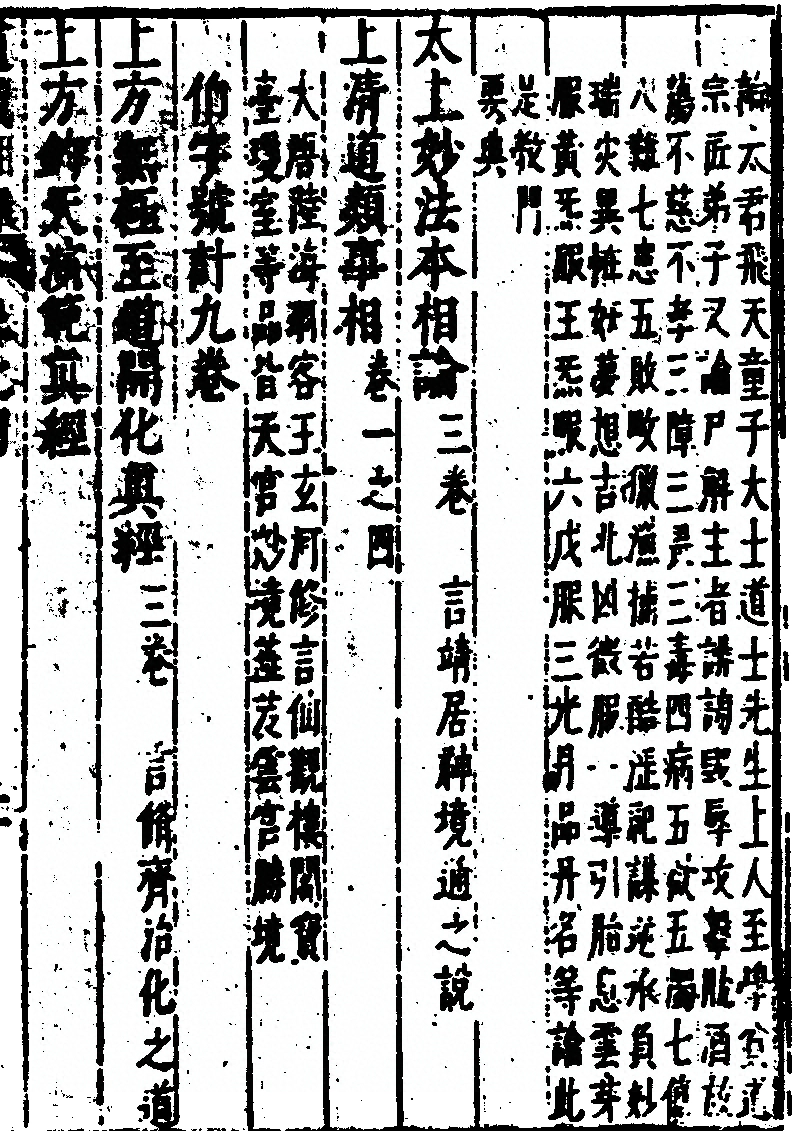 辯太君飛天童子大士道士先生上人至學
宗匠弟子又論尸解主者謗謗毀辱攻擊酒
蕩不慈不孝三障三畏三毒四病五欲五濁七傷
八難七患五敗畋獵漁捕若酷淫祀謀逆水負妙
瑞災異怪妖夢想吉凶微服導引胎息雲芽
服黃炁服王炁暇六戊服三光月品丹名等論此
是教門
要典
太上妙法本相論三卷 言靖居神境通之說
上清道類事相卷一之四
大唐陸海羽客王玄河修言仙觀樓閣寶
臺瓊室等品皆天宮妙境並芝雲宮勝境
伯字號計九卷
上方無極至道開化真經三卷 言脩齊治化之道
上方鈞天演範真經